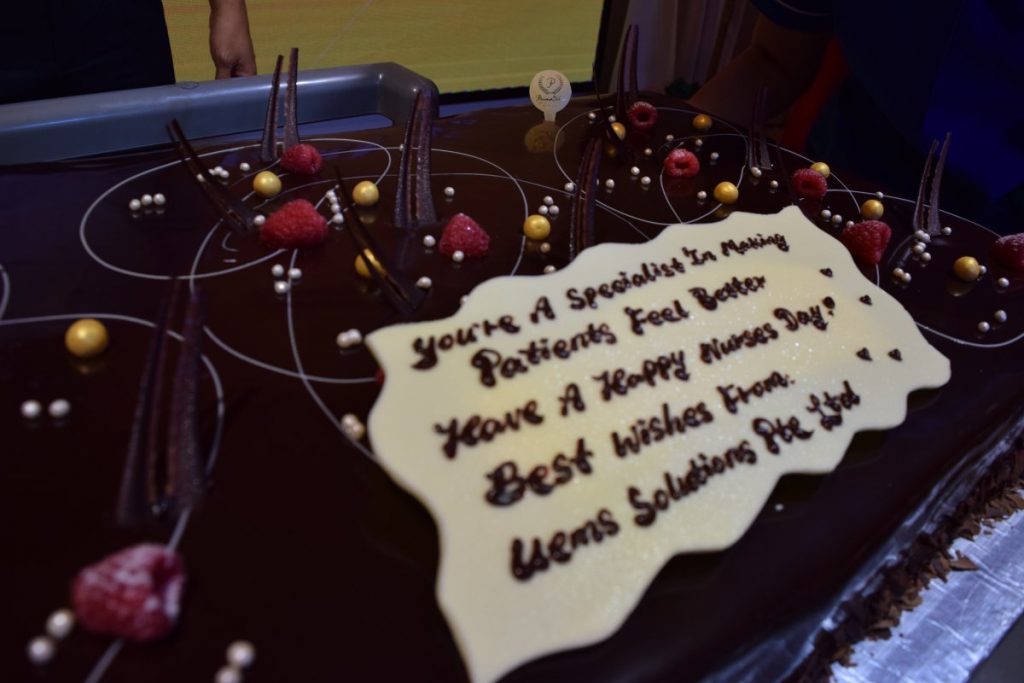 You're A Specialist In Making
Patients Feel Better
Have A Happy Nurses Day!
Best Wishes From:
Uems Solutions Pte Ltd